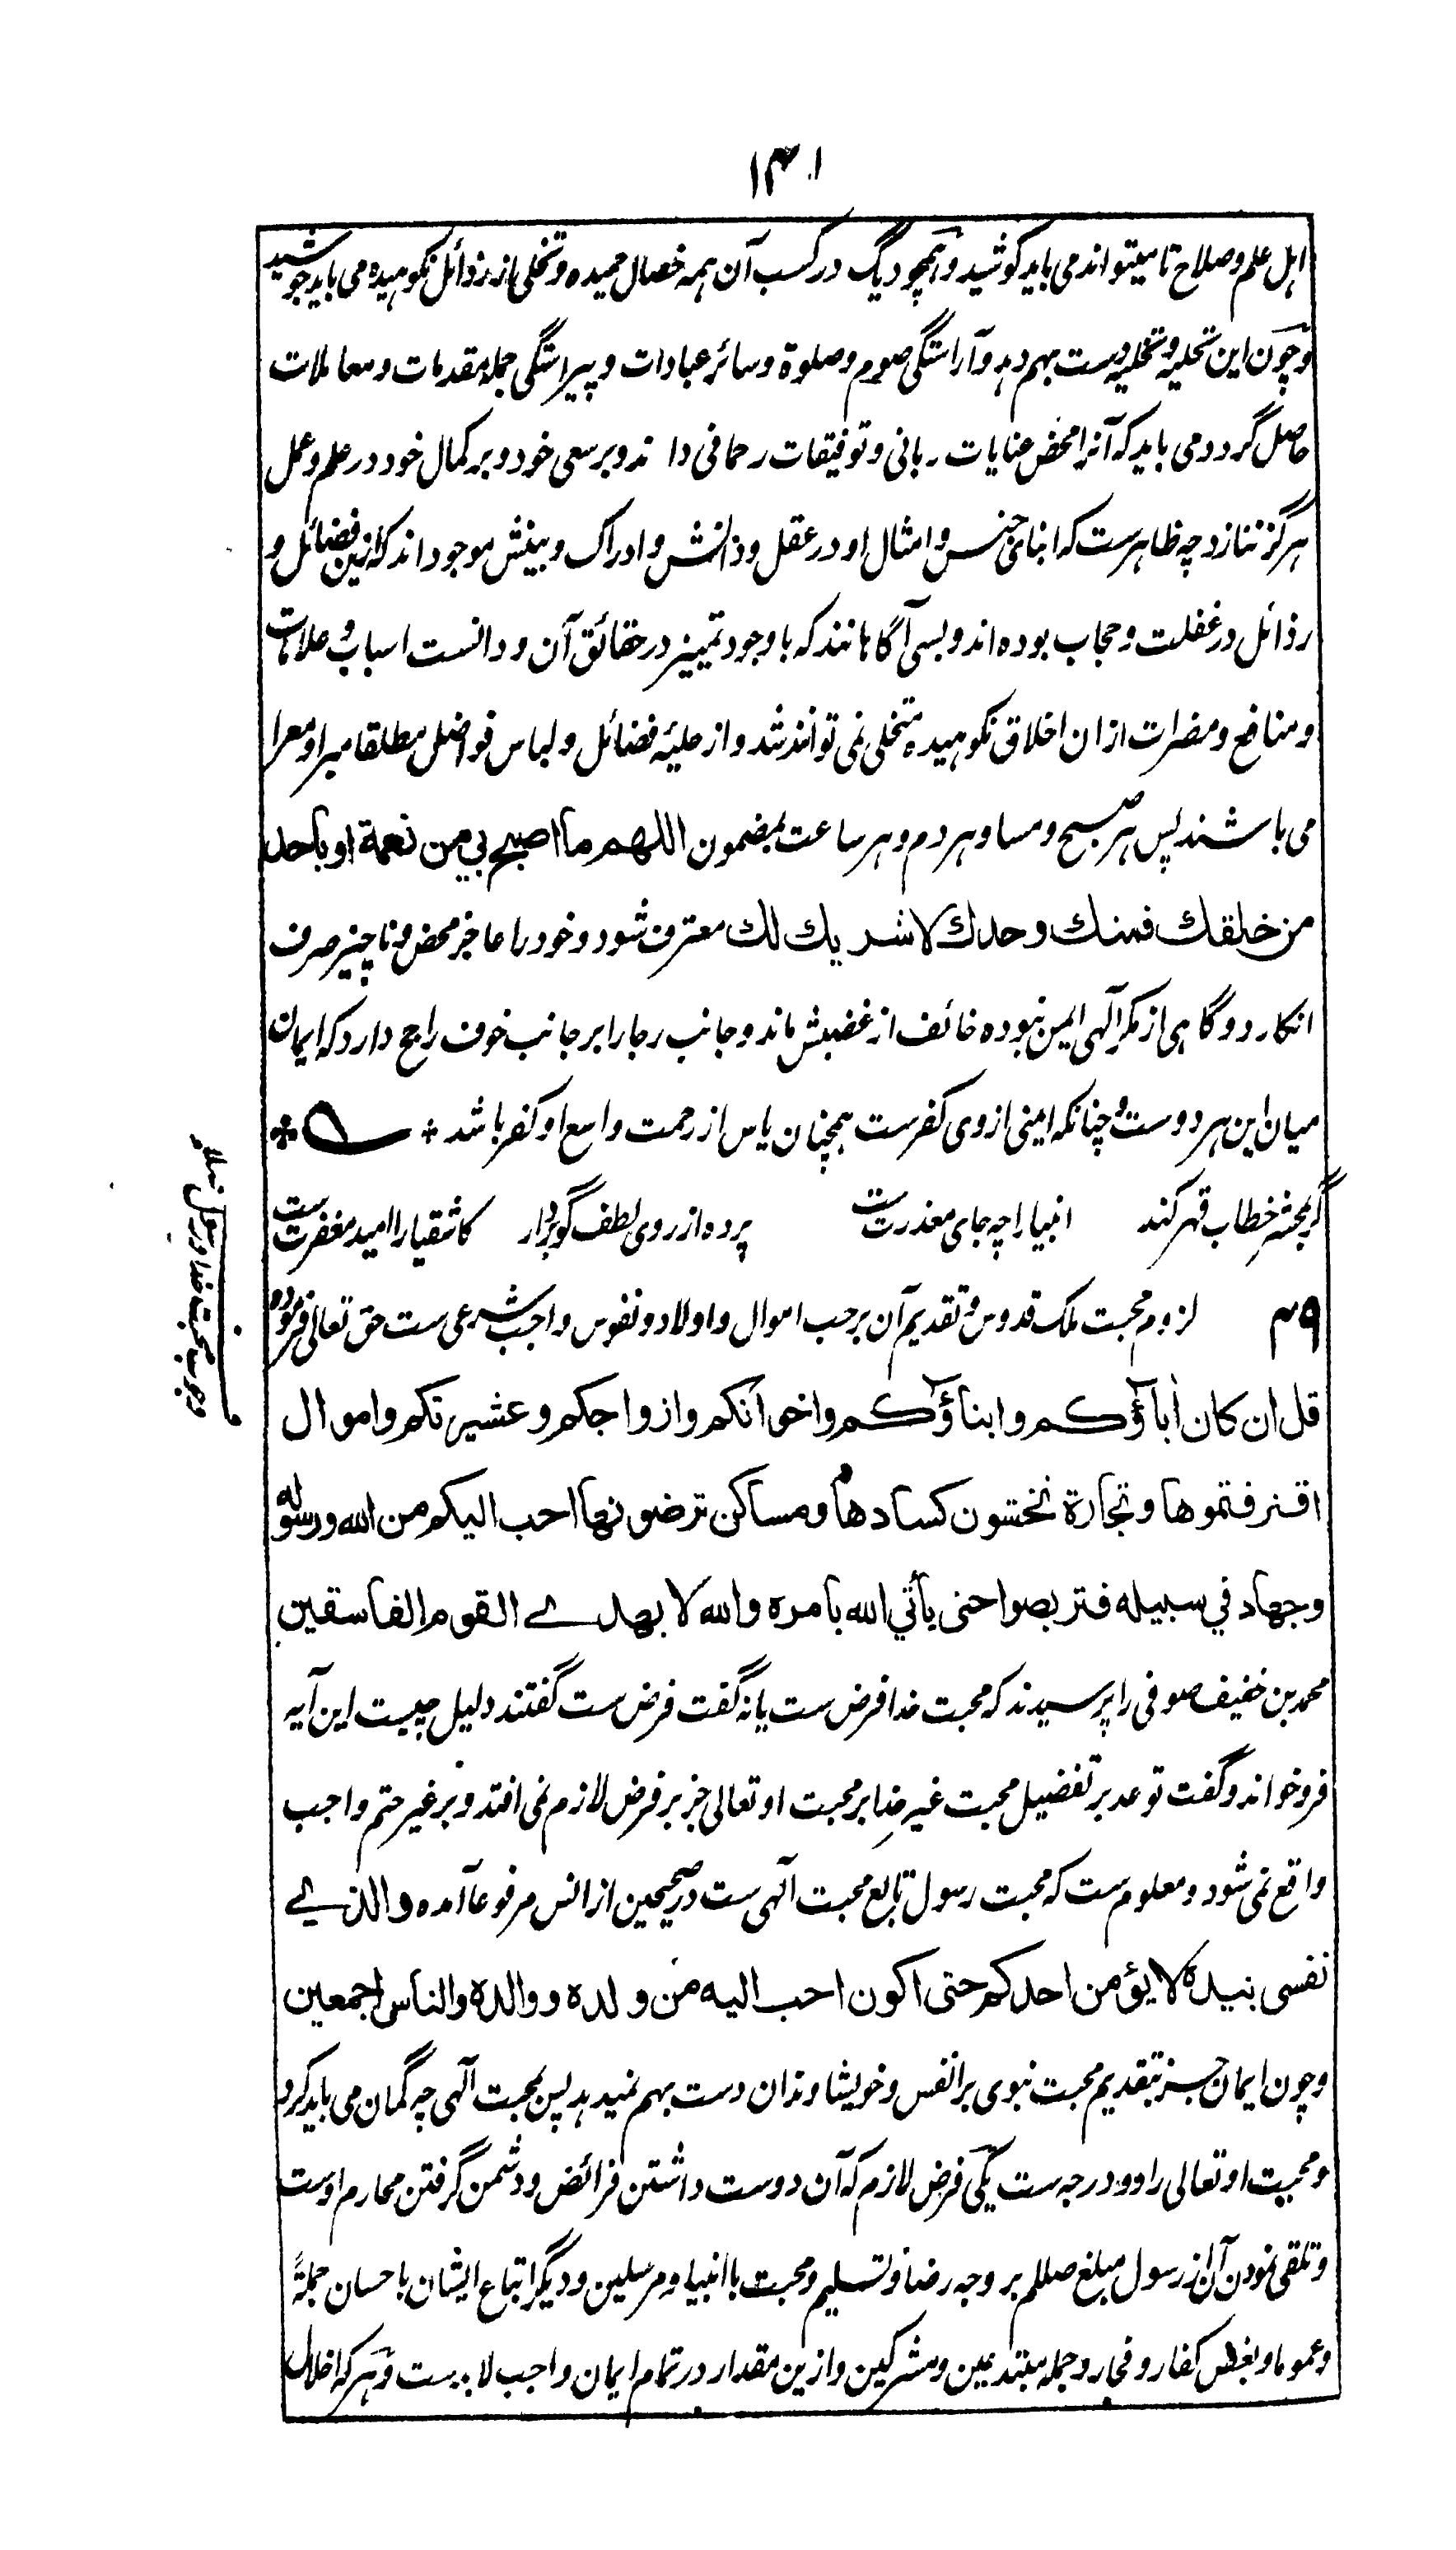 ۱۴۱
اهل علم و صلاح تا میتواند می باید کوشید و همچو دیگ در کسب آن همه خصال حمیده و تخلی از رذائل نکوهیده می باید جوشید
و چون این تحلیه و تخلیه دست بهم دهد و آراستگی صوم و صلوة و سائر عبادات و پیراستگی جمله مقدمات و معاملات
حاصل گردد می باید که آنرا محض عنایات ربانی و توفیقات رحمانی داند و بر سعی خود و بر کمال خود در علم و عمل
هرگز ننازد چه ظاهرست که ابنای جنس و امثال او در عقل و دانش و ادراک و بینش موجود اند که ازین فضائل و
رذائل در غفلت و حجاب بوده اند و بسی آگاهانند که با وجود تمییز در حقائق آن و دانست اسباب و علامات
و منافع و مضرات ازان اخلاق نکوهیده متخلی نمی توانند شد و از حلیهٔ فضائل و لباس فواضل مطلقا مبرا و معرا
می باشند پس هر صبح و مسا و هر دم و هر ساعت بمضمون اللهم ما اصبح بی من نعمة او باحد
من خلقك فمنك وحدك لا شریك لك معترف شود و خود را عاجز محض و ناچیز صرف
انگارد و گاهی از مکر آلهی ایمن نبوده خائف از غضبش ماند و جانب رجا را بر جانب خوف راجح دارد که ایمان
میان این هر دوست و چنانکه ایمنی ازوی کفرست همچنان یاس از رحمت واسع او کفر باشد
گر بمحشر خطاب قهر کند انبیا را چه جای معذرت ست پرده از روی لطف گو بردار کاشقیا را امید مغفرت ست
۴۹ لزوم محبت ملک قدوس و تقدیم آن بر حب اموال و اولاد و نفوس واجب شرعی ست حق تعالی فرموده
وجوب محبت خدا و رسول
قل ان کان اٰباؤکم وابناؤکم واخوانکم وازواجکم وعشیرتکم واموال
اقترفتموها وتجارة تخشون کسادها ومساکن ترضونها احب الیکم من الله ورسوله
وجهاد في سبیله فتربصوا حتی یأتي الله بامره والله لا یهدے القوم الفاسقین
محمد بن خفیف صوفی را پرسیدند که محبت خدا فرض ست یا نه گفت فرض ست گفتند دلیل چیست این آیه
فرو خواند و گفت توعد بر تفضیل محبت غیر خدا بر محبت او تعالی جز بر فرض لازم نمی افتد و بر غیر حتم واجب
واقع نمی شود و معلوم ست که محبت رسول تابع محبت آلهی ست در صحیحین از انس مرفوعا آمده والذے
نفسی بیده لا یؤمن احدکم حتی اکون احب الیه من ولده ووالده والناس اجمعین
و چون ایمان جز بتقدیم محبت نبوی بر انفس و خویشاوندان دست بهم نمیدهد پس بمحبت آلهی چه گمان می باید کرد
و محبت او تعالی را دو درجه ست یکی فرض لازم که آن دوست داشتن فرائض و دشمن گرفتن محارم اوست
و تلقی نمودن آن از رسول مبلغ صللم بر وجه رضا و تسلیم و محبت با انبیا و مرسلین و دیگر اتباع ایشان باحسان جملةً
و عموما و بغض کفار و فجار و جمله مبتدعین و مشرکین و ازین مقدار در تمام ایمان واجب لا بد ست و هر که اخلال